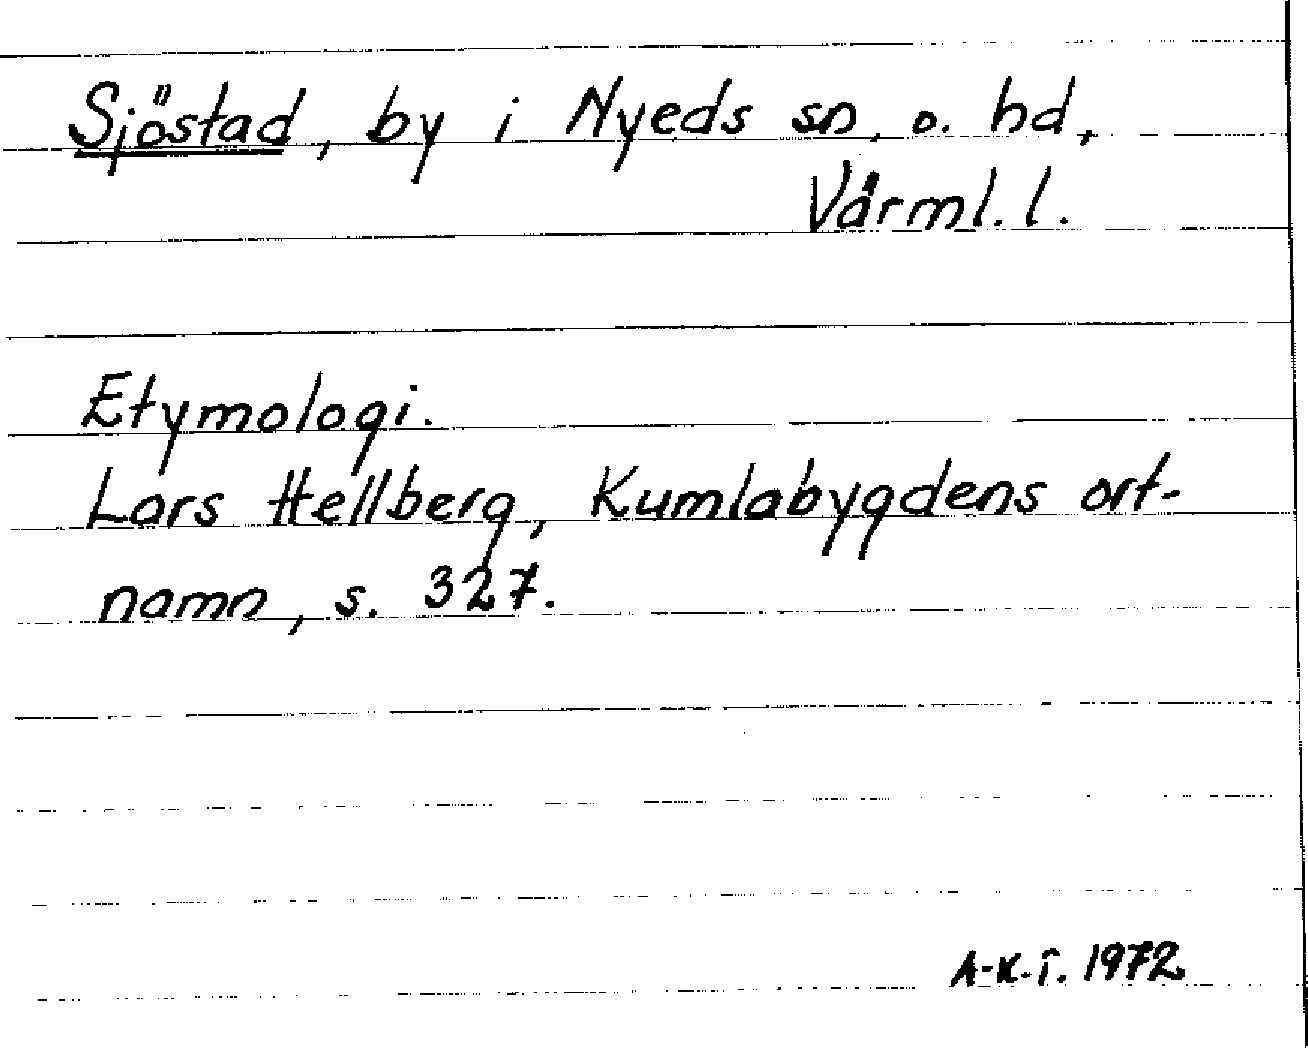 Sjöstad, by i Nyeds sn, o. hd,
Värml. l.
Etymologi.
Lars Hellberg, Kumlabygdens ort-
namn, s. 327.
A-K.T. 1972